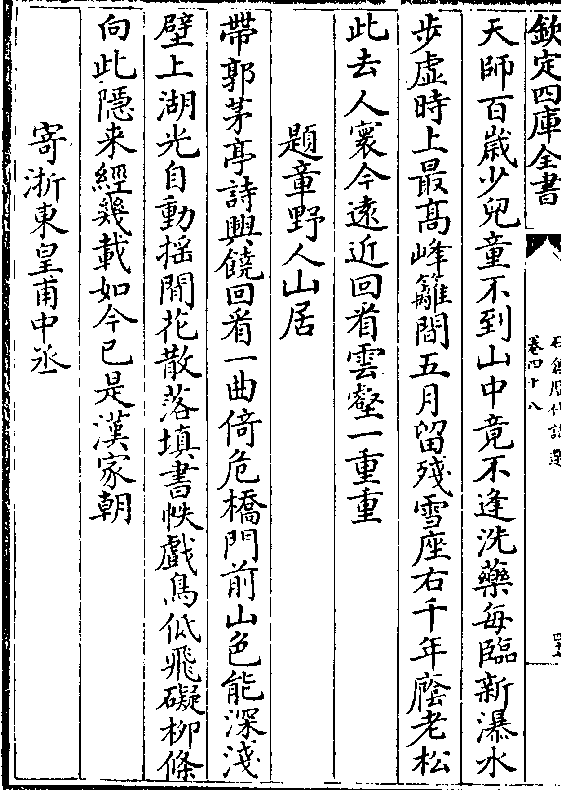 欽定四庫全書
卷四十八
天師百歳少兒童不到山中竟不逢洗藥每臨新瀑水
步虛時上最髙峰籬間五月留殘雪座右千年䕃老松
此去人寰今遠近回看雲壑一重重
題章野人山居
帶郭茅亭詩興饒回看一曲倚危橋門前山色能深淺
壁上湖光自動揺閒花散落填書帙戲鳥低飛礙栁條
向此隱来經幾載如今已是漢家朝
寄浙東皇甫中丞